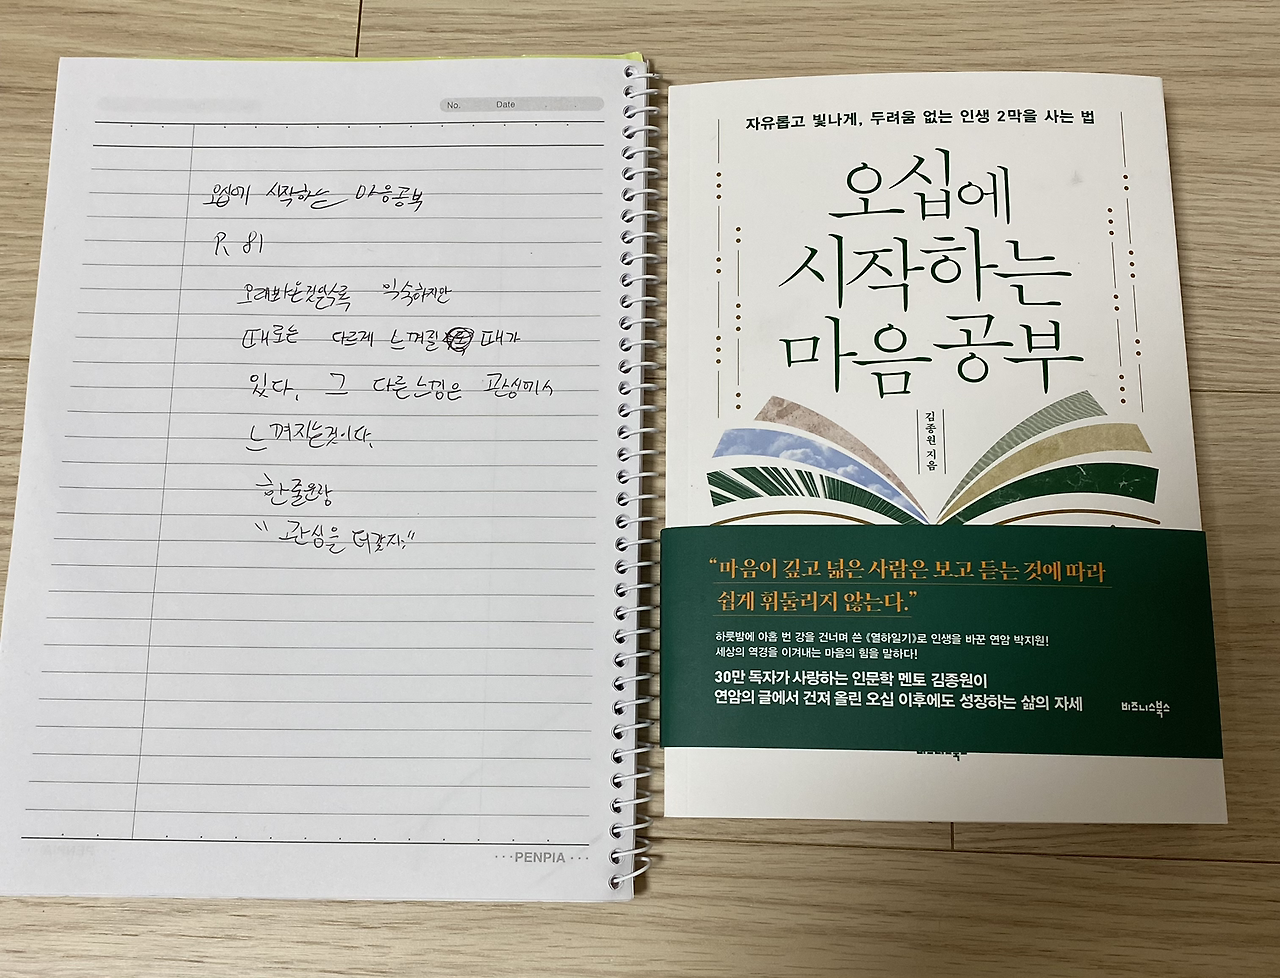 No. Date
오십에 시작하는 마음공부
P. 81
오래봐온것일수록 익숙하지만
때로는 다르게 느껴질 때가
있다. 그 다른느낌은 관심에서
느껴지는것이다.
한줄문장
"관심을 더갖자."
···PENPIA···
자유롭고 빛나게, 두려움 없는 인생 2막을 사는 법
오십에
시작하는
마음공부
김종원 지음
“마음이 깊고 넓은 사람은 보고 듣는 것에 따라
쉽게 휘둘리지 않는다.”
하룻밤에 아홉 번 강을 건너며 쓴 《열하일기》로 인생을 바꾼 연암 박지원!
세상의 역경을 이겨내는 마음의 힘을 말하다!
30만 독자가 사랑하는 인문학 멘토 김종원이
연암의 글에서 건져 올린 오십 이후에도 성장하는 삶의 자세
비즈니스북스